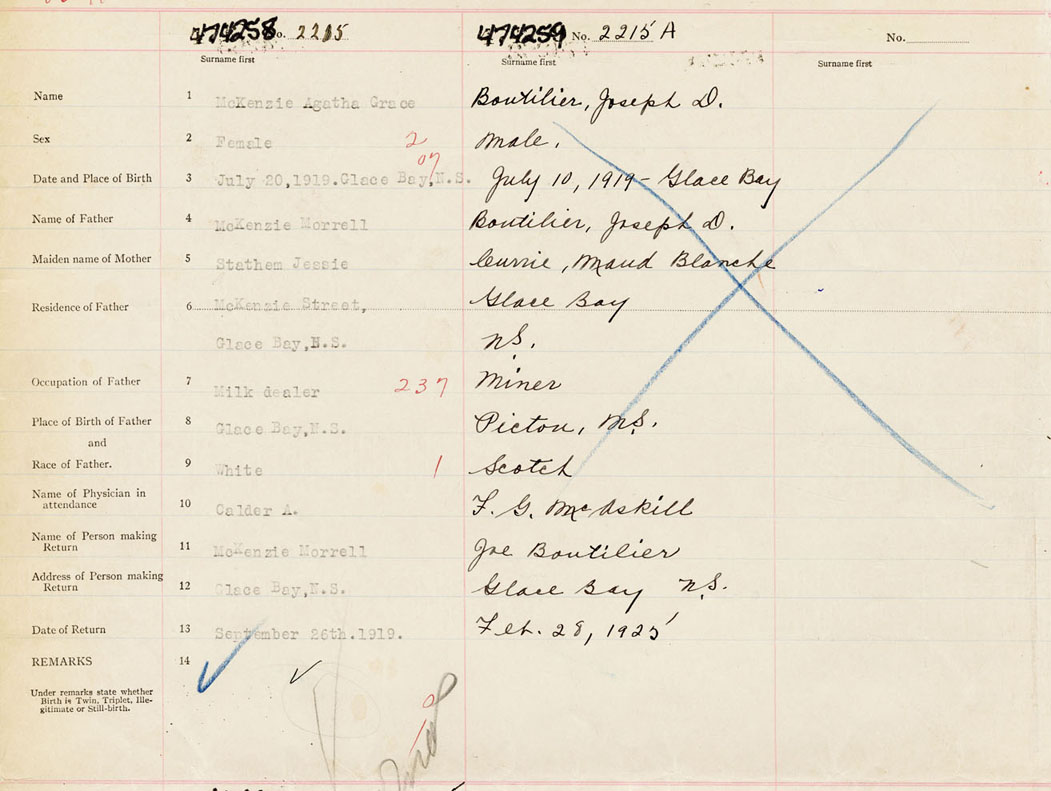 474258 No. 2215 474259 No. 2215 A No.
Surname first Surname first Surname first
Name 1 McKenzie Agatha Grace Boutilier, Joseph D.
Sex 2 Female 2 Male.
07
Date and Place of Birth 3 July 20,1919.Glace Bay,N.S. July 10, 1919 - Glace Bay
Name of Father 4 McKenzie Morrell Boutilier, Joseph D.
Maiden name of Mother 5 Stathem Jessie Currie, Maud Blanche
Residence of Father 6 McKenzie Street, Glace Bay
Glace Bay,N.S. N.S.
Occupation of Father 7 Milk dealer 237 Miner
Place of Birth of Father 8 Glace Bay,N.S. Pictou, N.S.
and
Race of Father. 9 White 1 Scotch
Name of Physician in
attendance 10 Calder A. F. G. McAskill
Name of Person making
Return 11 McKenzie Morrell Joe Boutilier
Address of Person making
Return 12 Glace Bay,N.S. Glace Bay N.S.
Date of Return 13 September 26th.1919. Feb. 28, 1925
REMARKS 14
Under remarks state whether
Birth is Twin, Triplet, Ille-
gitimate or Still-birth.